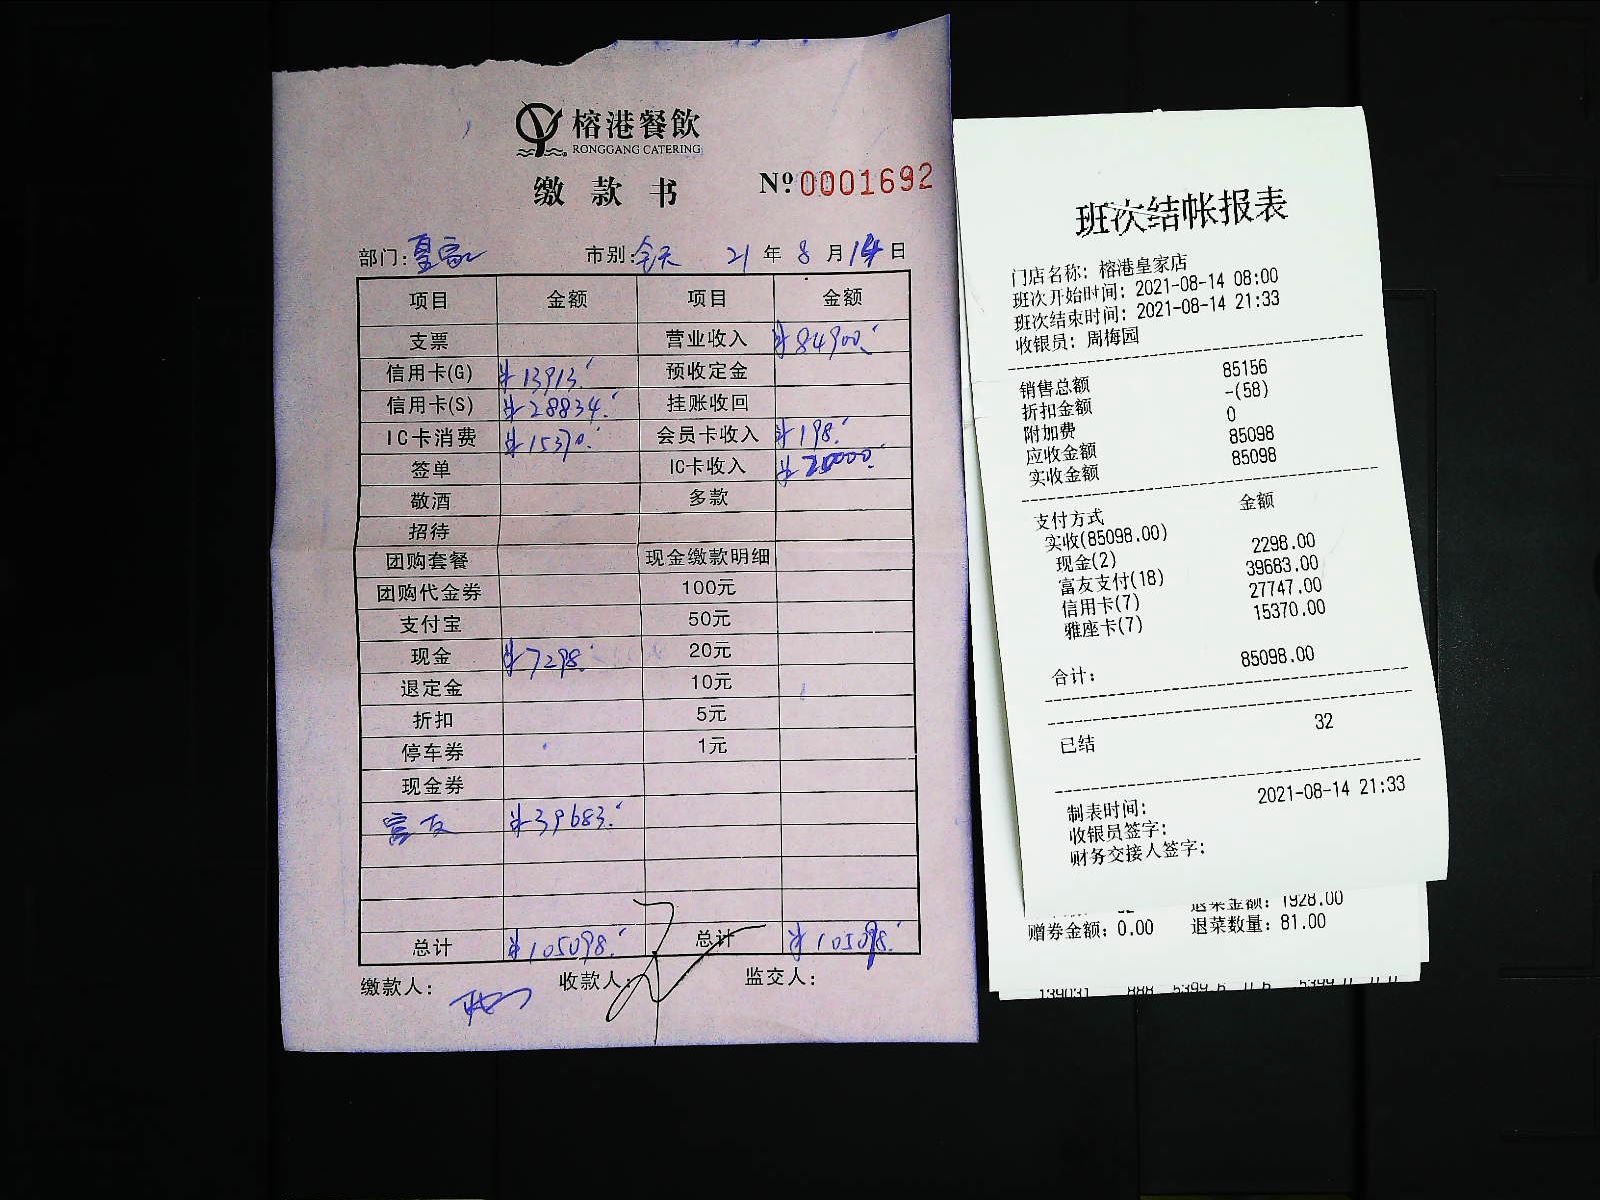 榕港餐飲
RONGGANG CATERING
缴款书 Nº 0001692
部门: 皇家 市别: 全天 21 年 8 月 14 日
项目 金额 项目 金额
支票 营业收入 ¥84900.
信用卡(G) ¥13913. 预收定金
信用卡(S) ¥28834. 挂账收回
IC卡消费 ¥15370. 会员卡收入 ¥198.
签单 IC卡收入 ¥20000.
敬酒 多款
招待
团购套餐 现金缴款明细
团购代金券 100元
支付宝 50元
现金 ¥7298. 20元
退定金 10元
折扣 5元
停车券 1元
现金券
富友 ¥39683.
总计 ¥105098. 总计 ¥105098.
缴款人: 收款人: 监交人:
班次结帐报表
门店名称: 榕港皇家店
班次开始时间: 2021-08-14 08:00
班次结束时间: 2021-08-14 21:33
收银员: 周梅园
销售总额 85156
折扣金额 -(58)
附加费 0
应收金额 85098
实收金额 85098
支付方式 金额
实收(85098.00)
现金(2) 2298.00
富友支付(18) 39683.00
信用卡(7) 27747.00
雅座卡(7) 15370.00
合计: 85098.00
已结 32
制表时间: 2021-08-14 21:33
收银员签字:
财务交接人签字:
退菜金额: 1928.00
赠券金额: 0.00 退菜数量: 81.00